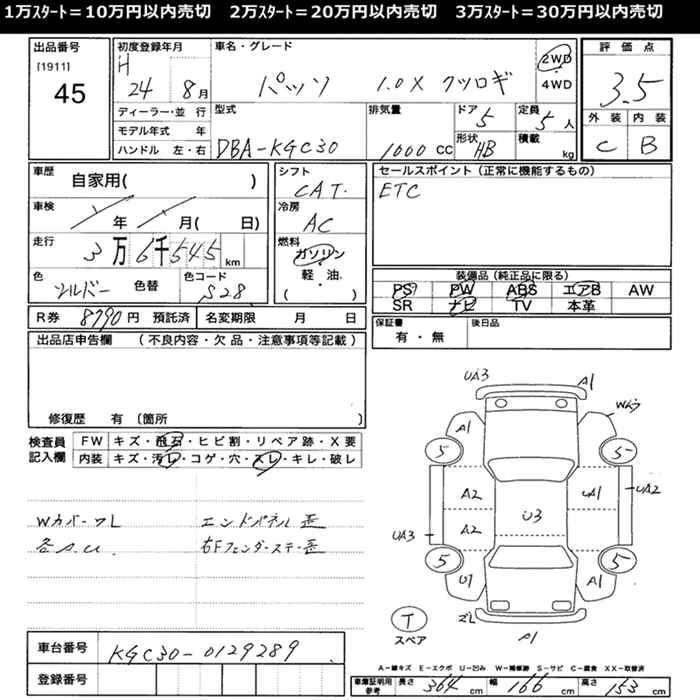 1万ｽﾀｰﾄ＝10万円以内売切　2万ｽﾀｰﾄ＝20万円以内売切　3万ｽﾀｰﾄ＝30万円以内売切
出品番号
[1911]
45
初度登録年月
H
24 8月
ディーラー・並 行
モデル年式 年
ハンドル 左・右
車名・グレード
パッソ 1.0X クツロギ
2WD
4WD
型式
DBA-KGC30
排気量
1000 CC
ドア
5
定員
5人
形状
HB
積載
kg
評 価 点
3.5
外 装 内 装
C B
車歴
自家用( )
車検
年 月( 日)
走行
3万6千545km
色
シルバー
色替
色コード
S28
シフト
CAT.
冷房
AC
燃料
ガソリン
軽・油
( )
セールスポイント（正常に機能するもの）
ETC
装備品（純正品に限る）
PS PW ABS エアB AW
SR ナビ TV 本革
R券 8790円 預託済
名変期限 月 日
保証書
有・無
後日品
出品店申告欄 （不良内容・欠品・注意事項等記載）
修復歴 有 〔箇所 〕
検査員
記入欄
FW キズ・飛石・ヒビ割・リペア跡・X要
内装 キズ・汚レ・コゲ・穴・スレ・キレ・破レ
Wカバーワレ エンドパネル歪
各A.U. 右Fフェンダーステー歪
UA3 A1
A1
5 5
A2 UA1 UA2
U3
UA3 A2
5 5
U1 A1
T
スペア
A1
A－線キズ E－エクボ U－凹み W－補修跡 S－サビ C－腐食 XX－取替済
車台番号
KGC30-0129289
登録番号
車庫証明用
参考
長さ 364cm 幅 166cm 高さ 153cm